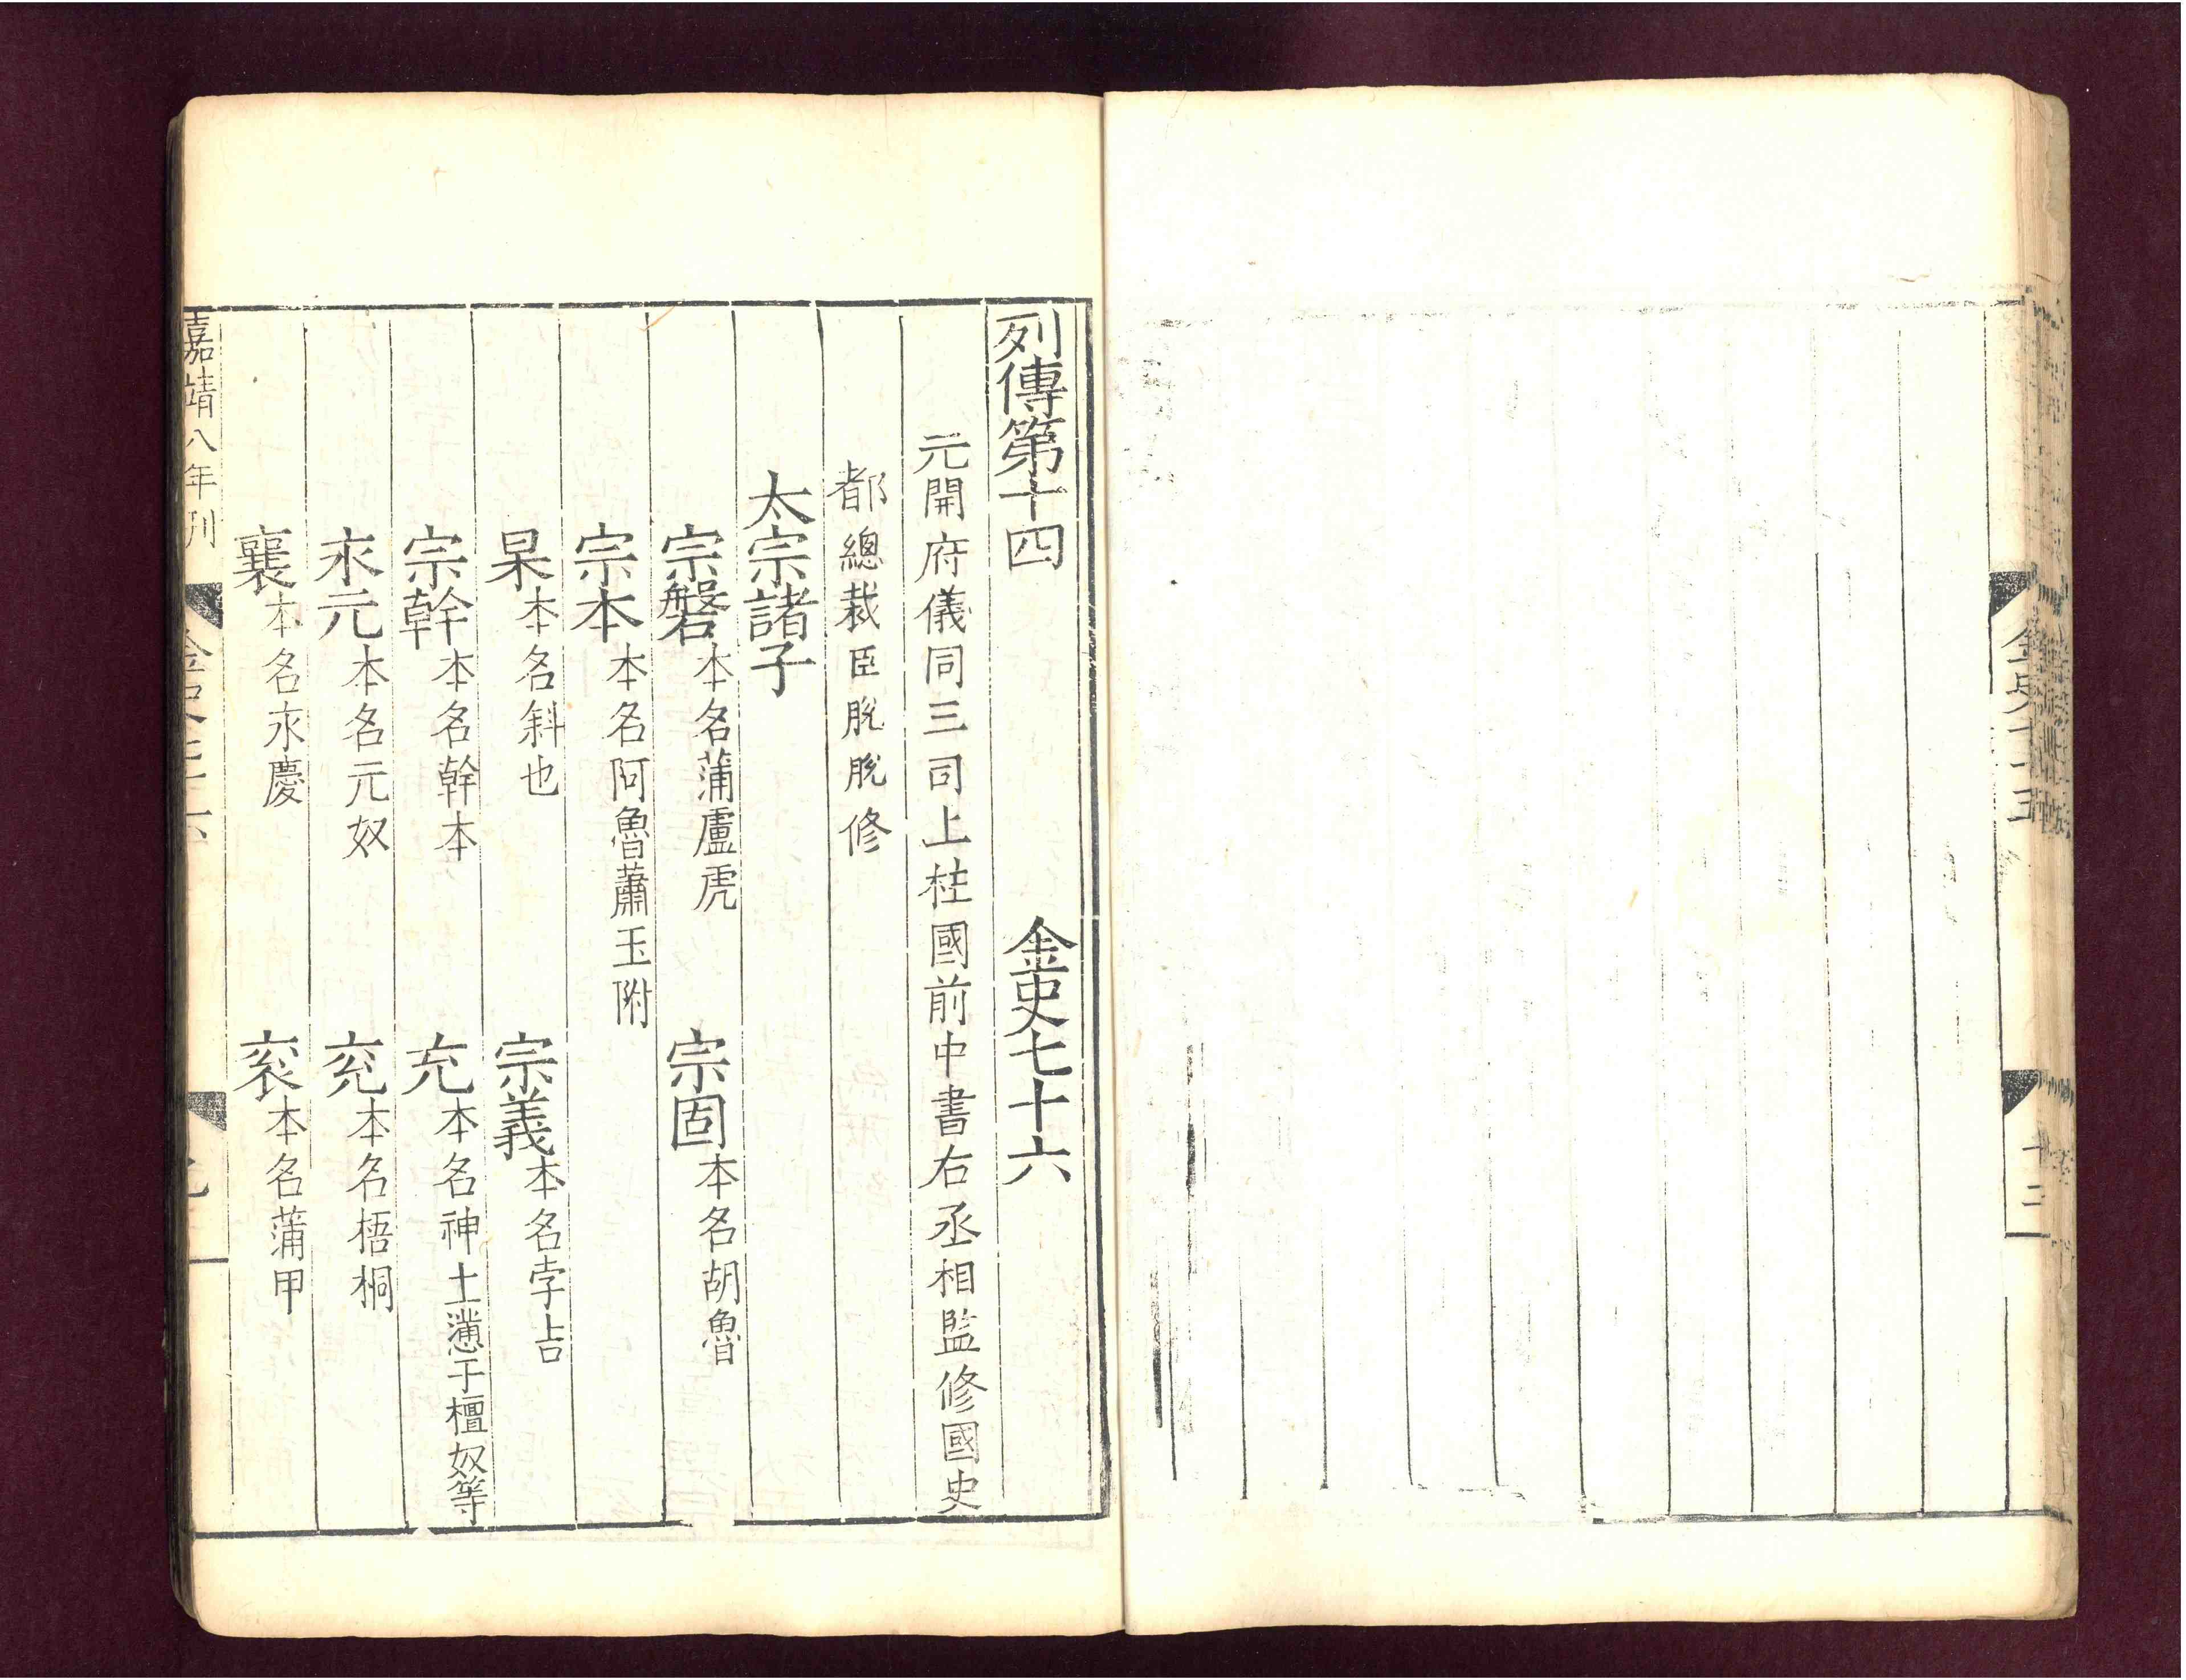 金史七十五
十二
列傳第十四 金史七十六
元開府儀同三司上柱國前中書右丞相監修國史
都總裁臣脫脫修
太宗諸子
宗磐本名蒲盧虎 宗固本名胡魯
宗本本名阿魯蕭玉附
杲本名斜也 宗義本名孛吉
宗幹本名幹本 充本名神土懣子檀奴等
永元本名元奴 兖本名梧桐
襄本名永慶 衮本名蒲甲
嘉靖八年刊
金史七十六